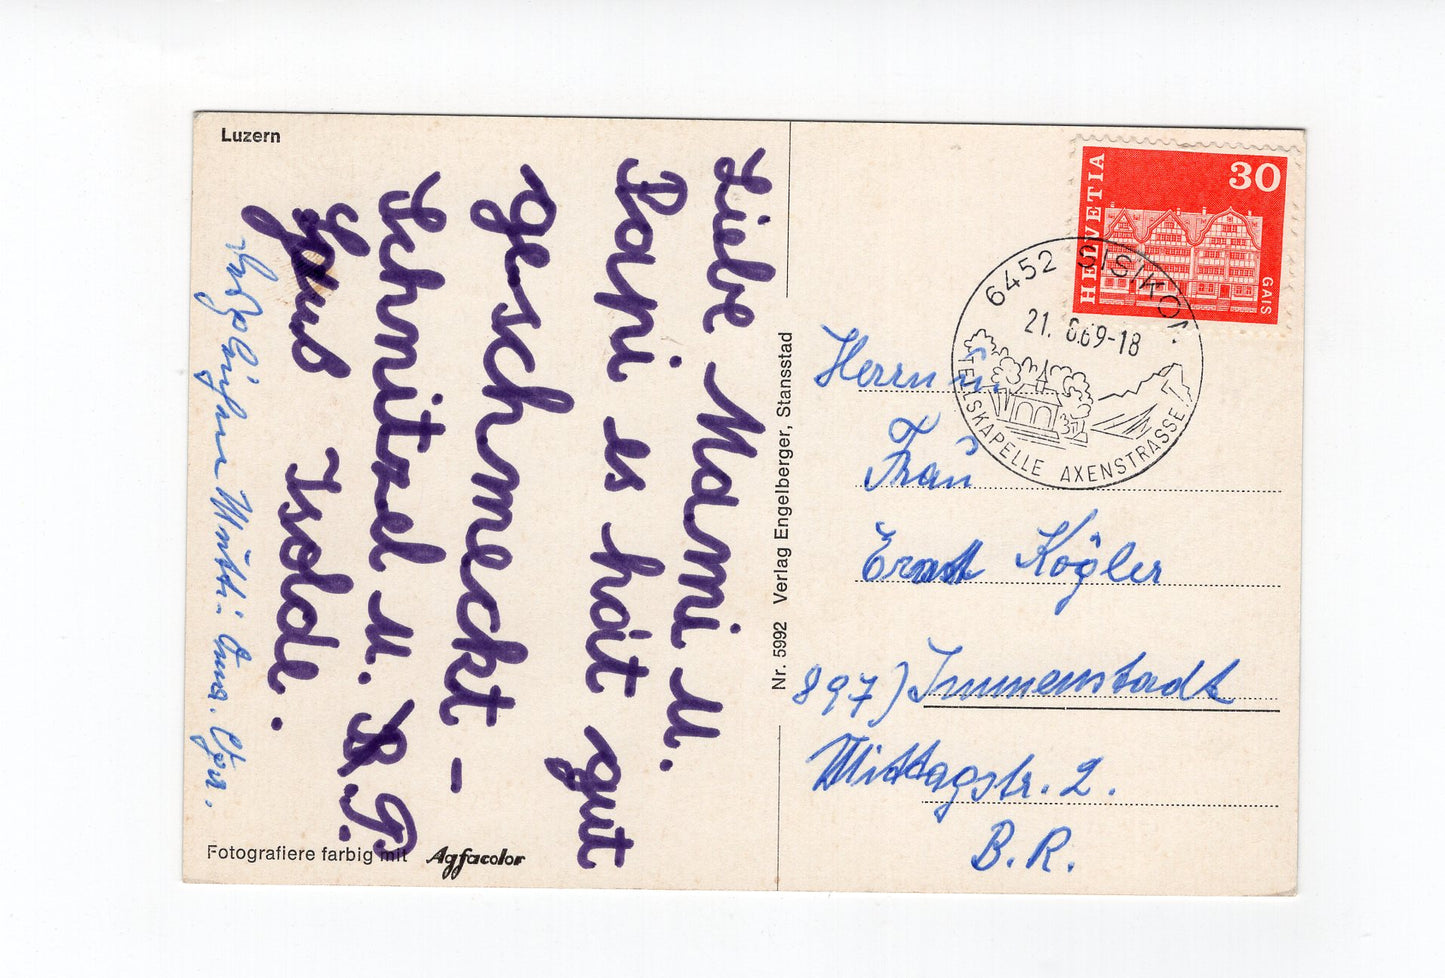 Luzern
Liebe Mami u.
Papi es hat gut
geschmeckt -
Schnitzel u. P. P.
Gruß Isolde.
Fotografiere farbig mit Agfacolor
Nr. 5992 Verlag Engelberger, Stansstad
HELVETIA
30
GAIS
6452 SISIKON
21. 6.69-18
TELLSKAPELLE AXENSTRASSE
Herrn u.
Frau
Ernst Kögler
897) Immenstadt
Mittagstr. 2.
B. R.